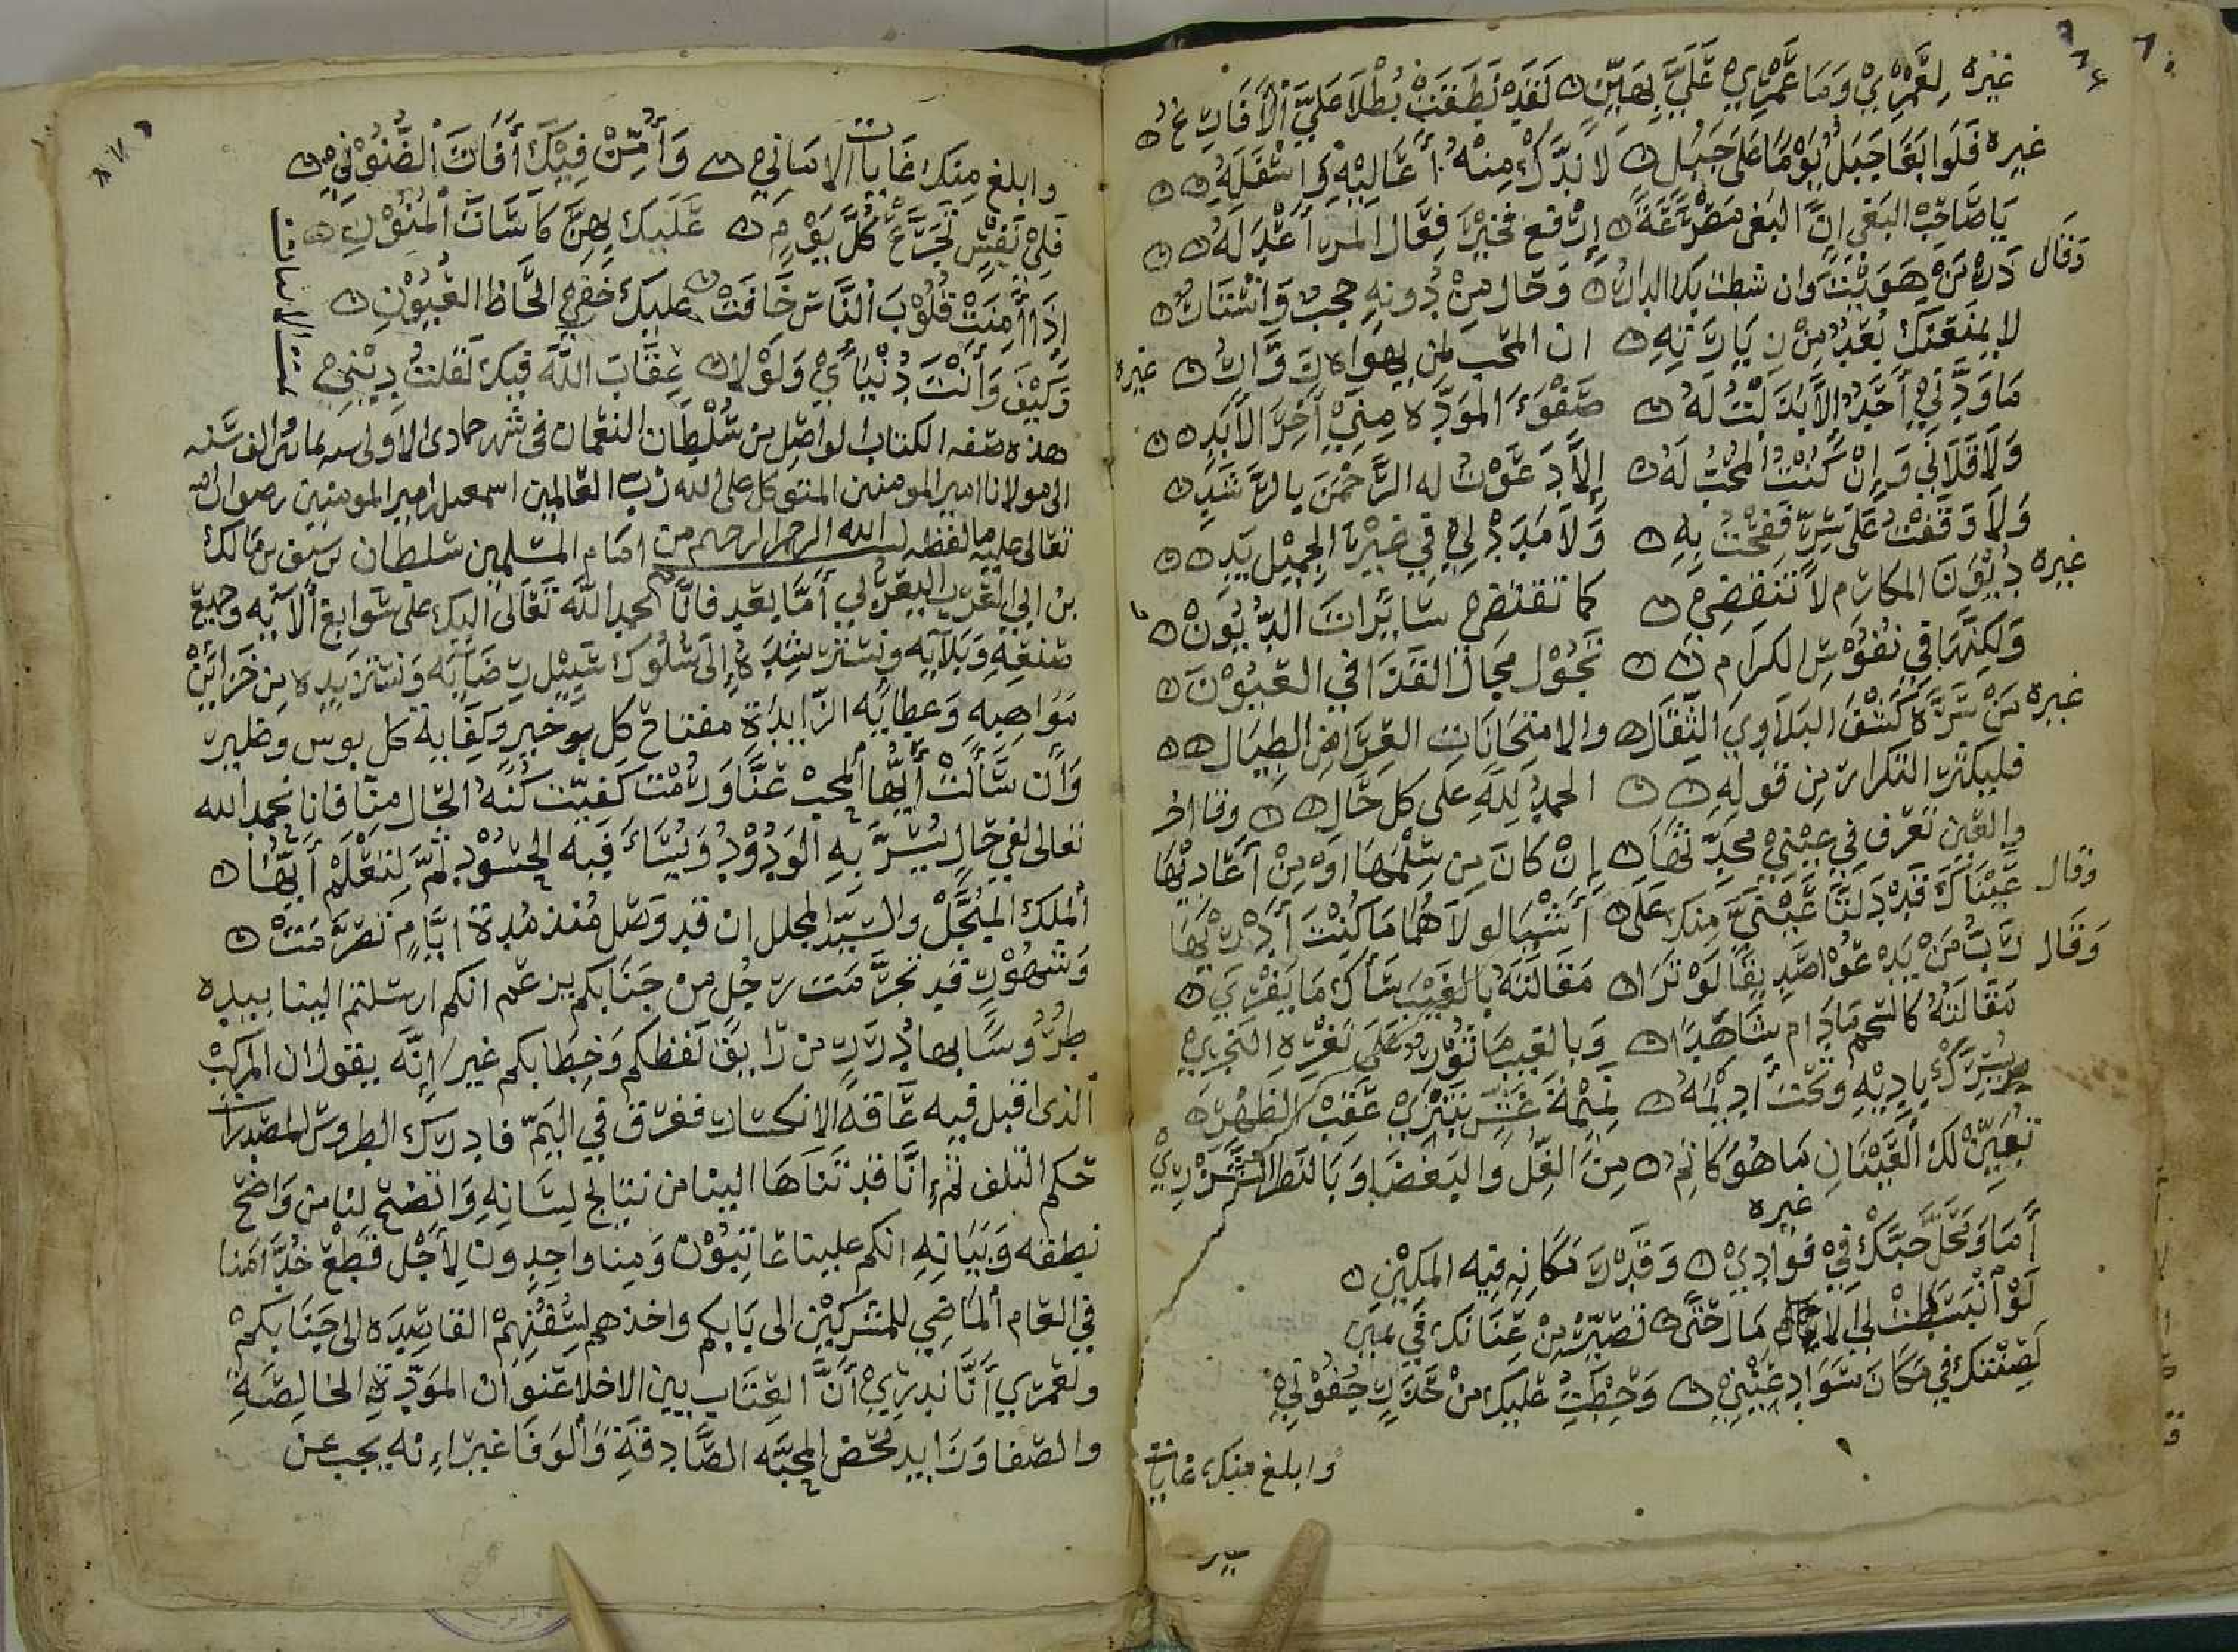 غيره لعمري وما عمري علي بهين لقد نطقت بطلا علي الأقارع
غيره فلو بغا جبل يوما على جبل لاندك منه أعاليه واسفله
يا صاحب البغي ان البغي مصرعة فخير فعال المرء أعدله
وقال زر من هويت وان شطت بك الدار وحال من دونه حجب واستار
لا يمنعنك بعد من زيارته ان المحب لمن يهواه زوار
غيره ما ودني أحد الا بذلت له صفو المودة مني آخر الأبد
ولا قلاني وإن كنت المحب له إلا دعوت له الرحمن بالرشد
ولا وقفت على سر فبحت به ولا مددت لي في غير الجميل يد
غيره ديون المكارم لا تنقضي كما تقتضي سايرات الديون
ولكنها في نفوس الكرام تجول مجال القذا في العيون
غيره من سره كشف البلاوي الثقال والامتحانات العراض الطيال
فليكثر التكرار من قوله الحمد لله على كل حال وقال اخر
والعين تعرف في عيني محدثها إن كان من سلمها او من أعاديها
وقال عيناك قد دلتا عيني منك على أشيا لولاهما ما كنت أدريها
وقال رب من يدعوا صديقا لو ترا مقالته بالغيب ساك ما يفري
مقالته كالشحم مادام شاهدا وبالغيب ماثور على ثغرة النحر
يسرك باديه وتحت أديمه نميمة غش تبتري عقب الظهر
تبين لك العينان ما هو كاتم من الغل والبغضا وبالنظر الشزر
غيره
أما ومحل حبك في فوادي وقدر مكانه فيه المكين
لو انبسطت لي الامال حتى تصير من عنانك في يمين
لصنتك في مكان سواد عيني وحطت عليك من حذر جفوني
وابلغ منك غايات
وابلغ منك غايات الاماني وأمن فيك أفات الظنون
فلي نفس تجرع كل يوم عليك بهن كاسات المنون
إذا أمنت قلوب الناس خافت عليك خفي الحاظ العيون
وكيف وأنت دنياي ولولا عقاب الله فيك لقلت ديني
هذه صفه الكتاب الواصل من سلطان النعمان في شهر جمادى الاولى الف سنه
الى مولانا امير المومنين المتوكل على الله رب العالمين اسمعيل امير المومنين رضوان الله
تعالى عليه ما لفظه بسم الله الرحمن الرحيم من امام المسلمين سلطان بن سيف بن مالك
بن ابي العرب اليعربي أما بعد فانا نحمد الله تعالى اليك على سوابغ ألآيه وجميع
صنعه وبلآيه ونسترشده إلى سلوك سبيل رضايه ونستزيده من خزاين
مواهبه وعطايه الزايدة مفتاح كل خير وكفاية كل بوس وضير
وأن سألت أيها المحب عنا ورمت كيفيت كنه الحال منا فانا بحمد الله
تعالى لفي حال يسر به الودود ويساء فيه الحسود ثم لتعلم أيها
الملك المبجل والسيد المجلل ان قد وصل منذ مدة ايام تصرمت
وشهور قد تجرمت رجل من جنابكم يزعم انكم ارسلتم الينا بيده
طروسا بها درر من رايق لفظكم وخطابكم غير إنه يقول ان المركب
الذي اقبل فيه عاقه الانكسار فغرق في اليم فادرك الطروس المصدرات
حكم التلف ثم إنا قد تناها الينا من نتايج لسانه واتضح لنا من واضح
نطقه وبيانه انكم علينا عاتبون ومنا واجدون لأجل قطع خدامنا
في العام الماضي للمشركين الى بابكم واخذهم لسفنهم القاصدة الى جنابكم
ولعمري أنا ندري أن العتاب بين الاخلا عنوان المودة الخالصة
والصفا وزايد محض المحبه الصادقة والوفا غير انه يجب عن